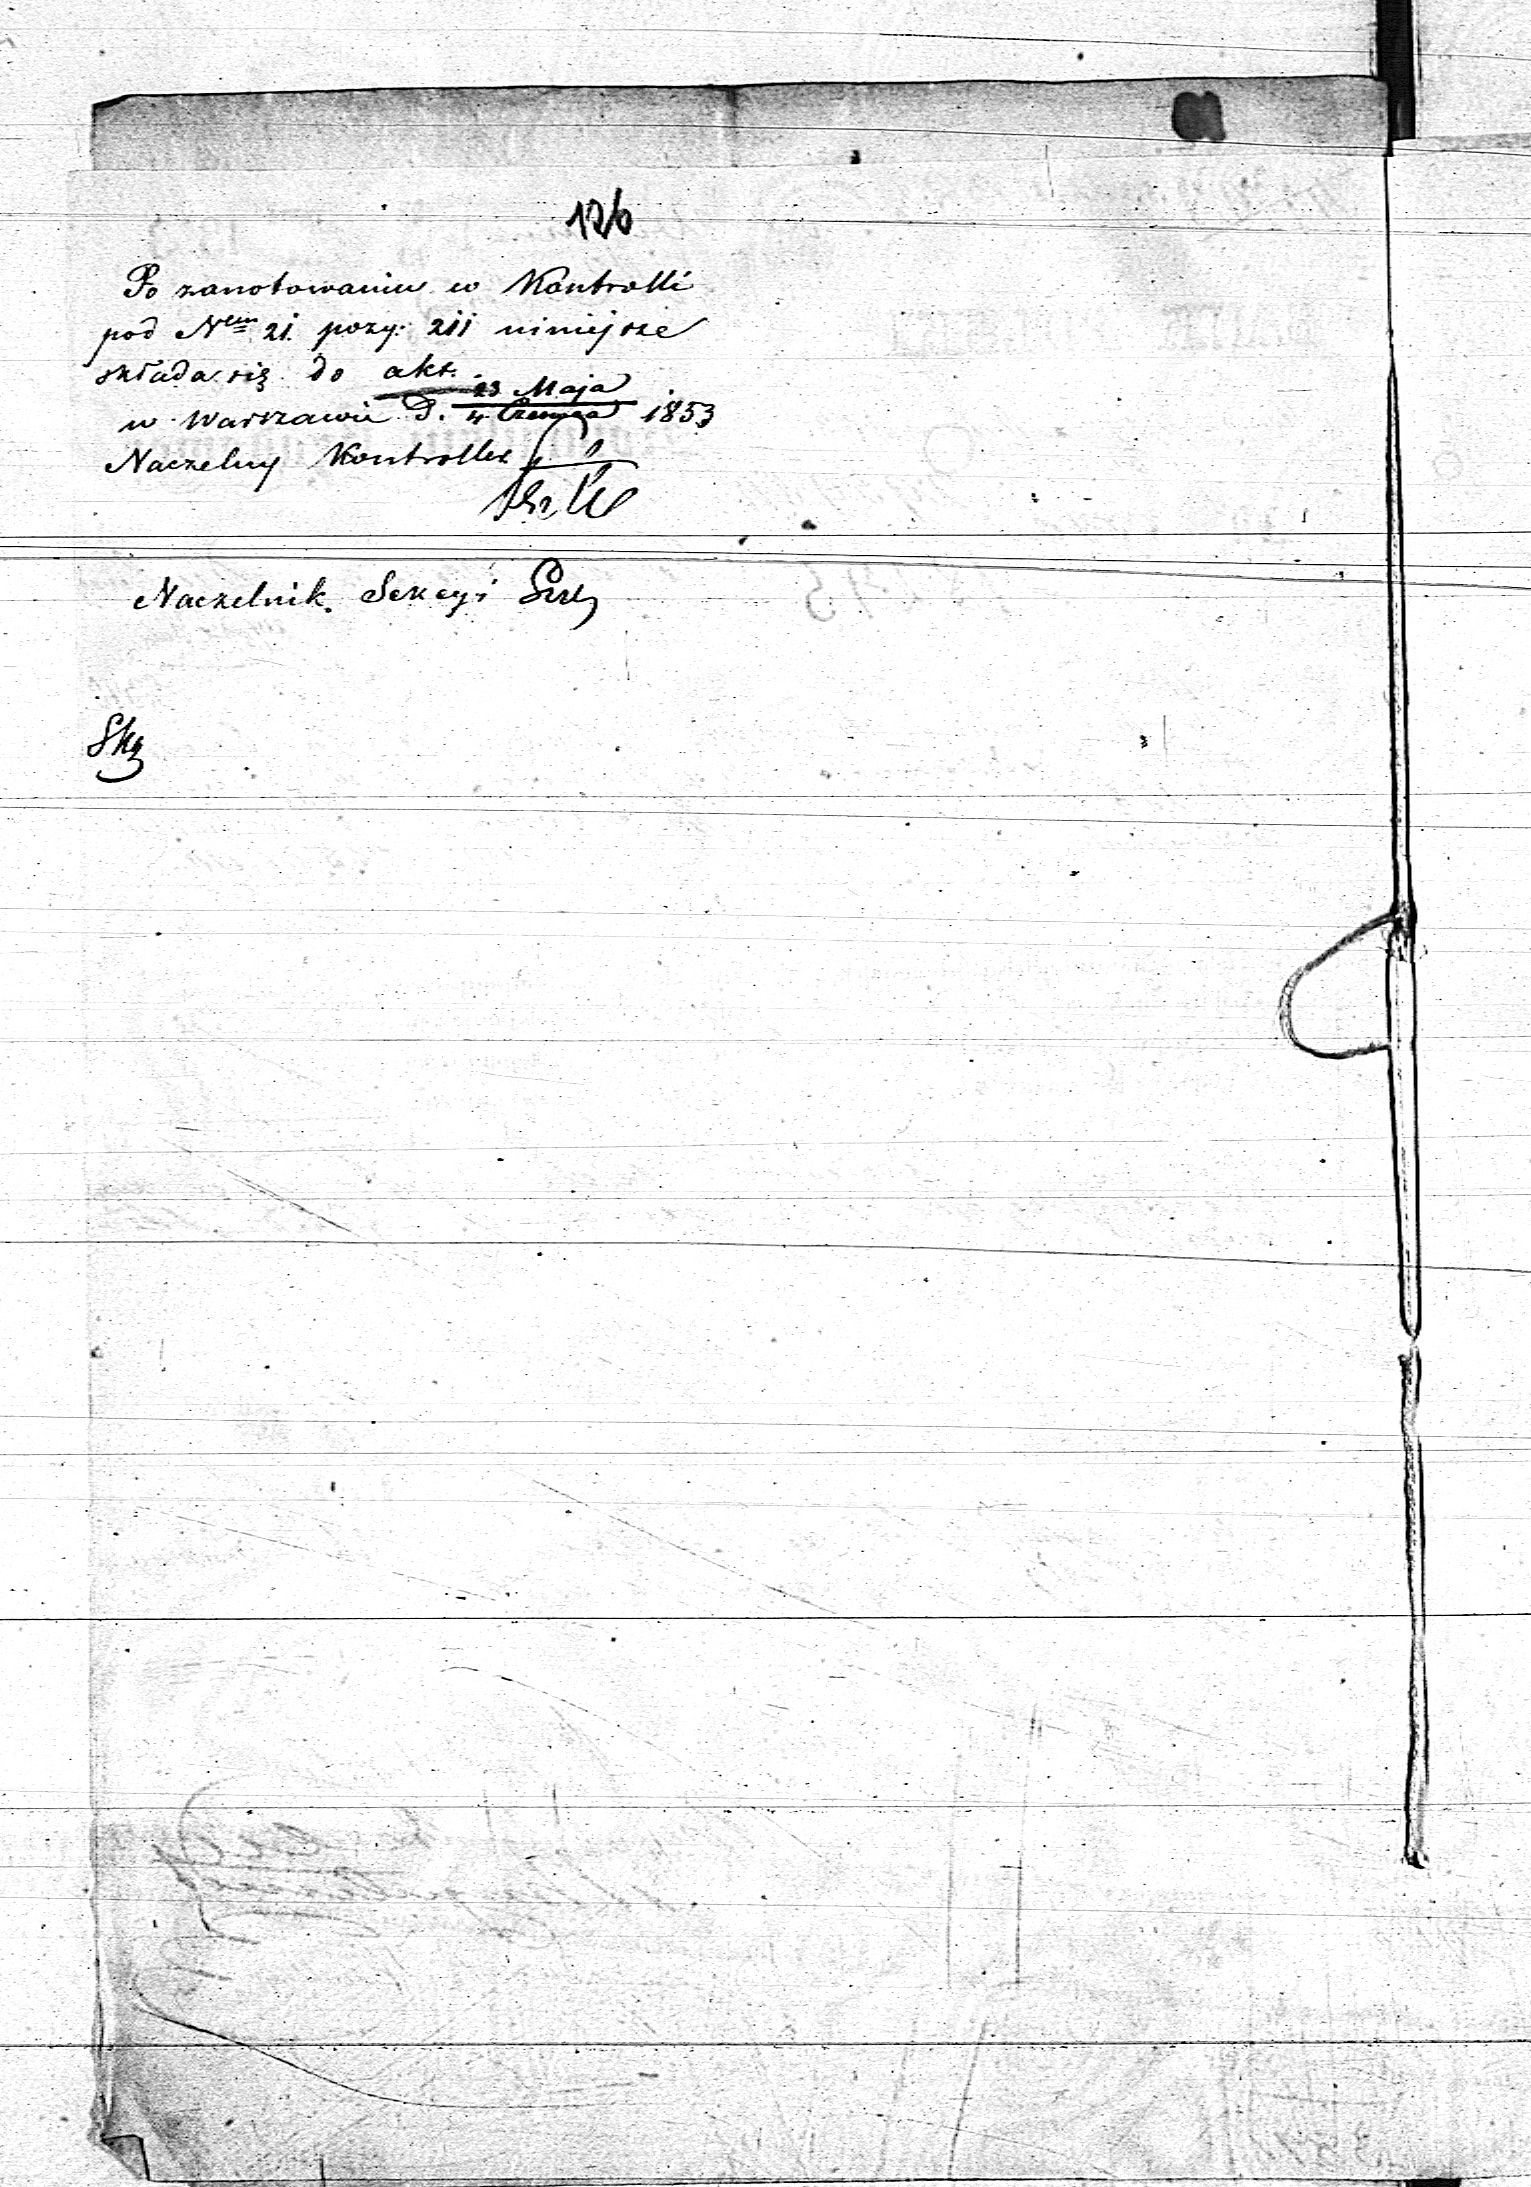 126
Po zanotowaniu w Kontrolli
pod Nem 21. pozy: 211 niniejsze
składa się do akt.
w Warszawie D. 23 Maja / 4 Czerwca 1853
Naczelny Kontroller
Naczelnik Sekcyi